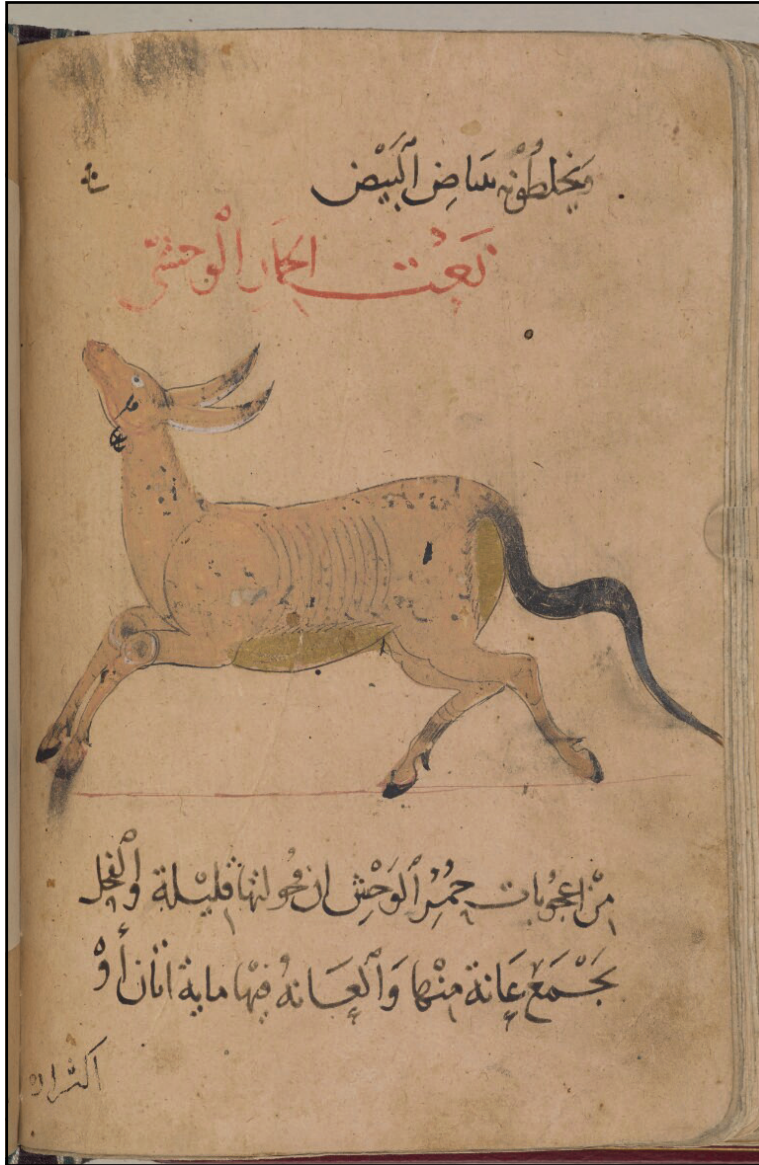 ويخلطونه ببياض ٱلبَيْض
نَعْت الحمار ٱلْوحشى
مِنْ اعجُوبات حُمُرِ ٱلوَحْشِ ان فحُولتها قليْلة وٱلفحل
يجْمَع عَانة مِنْها وَٱلعَانهُ فِيْها ماية اتان أَوْ
اكثر